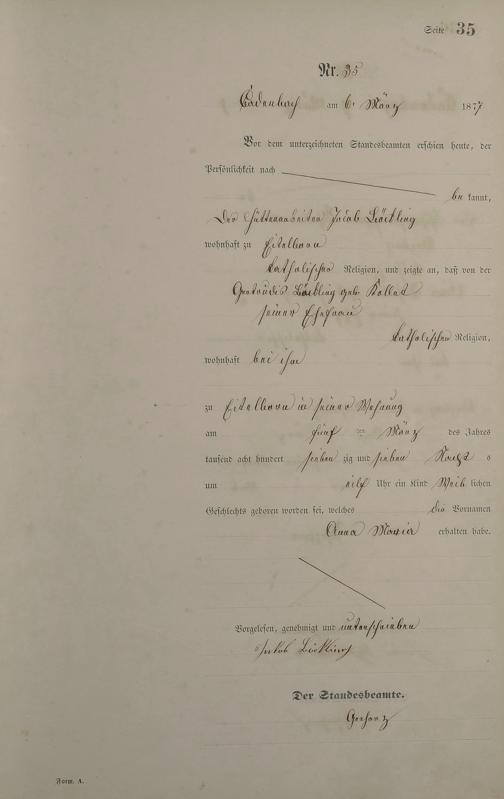 Seite 35
Nr. 35
Cadenbach am 6. März 1877
Vor dem unterzeichneten Standesbeamten erschien heute, der
Persönlichkeit nach
be kannt,
Der Hüttenarbeiter Jacob Böckling
wohnhaft zu Eitelborn
katholischer Religion, und zeigte an, daß von der
Gertrudis Böckling geb.
seiner Ehefrau
katholischer Religion,
wohnhaft bei ihm
zu Eitelborn in seiner Wohnung
am fünf ten März des Jahres
tausend acht hundert sieben zig und sieben Nachts
um eilf Uhr ein Kind Weib lichen
Geschlechts geboren worden sei, welches die Vornamen
Anna Maria erhalten habe.
Vorgelesen, genehmigt und unterschrieben
Jakob Böckling
Der Standesbeamte.
Form. A.